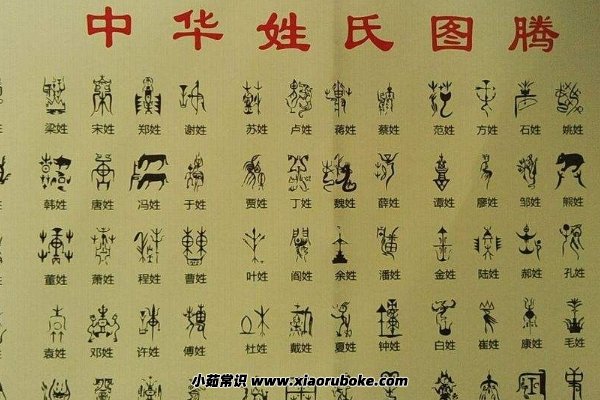 中华姓氏图腾
梁姓 宋姓 郑姓 谢姓 苏姓 卢姓 蒋姓 蔡姓 范姓 方姓 石姓 姚姓
韩姓 唐姓 冯姓 于姓 贾姓 丁姓 魏姓 薛姓 谭姓 廖姓 邹姓 熊姓
董姓 萧姓 程姓 曹姓 叶姓 阎姓 余姓 潘姓 金姓 陆姓 郝姓 孔姓
袁姓 邓姓 许姓 傅姓 杜姓 戴姓 夏姓 钟姓 白姓 崔姓 康姓 毛姓
小茹常识 www.xiaoruboke.com